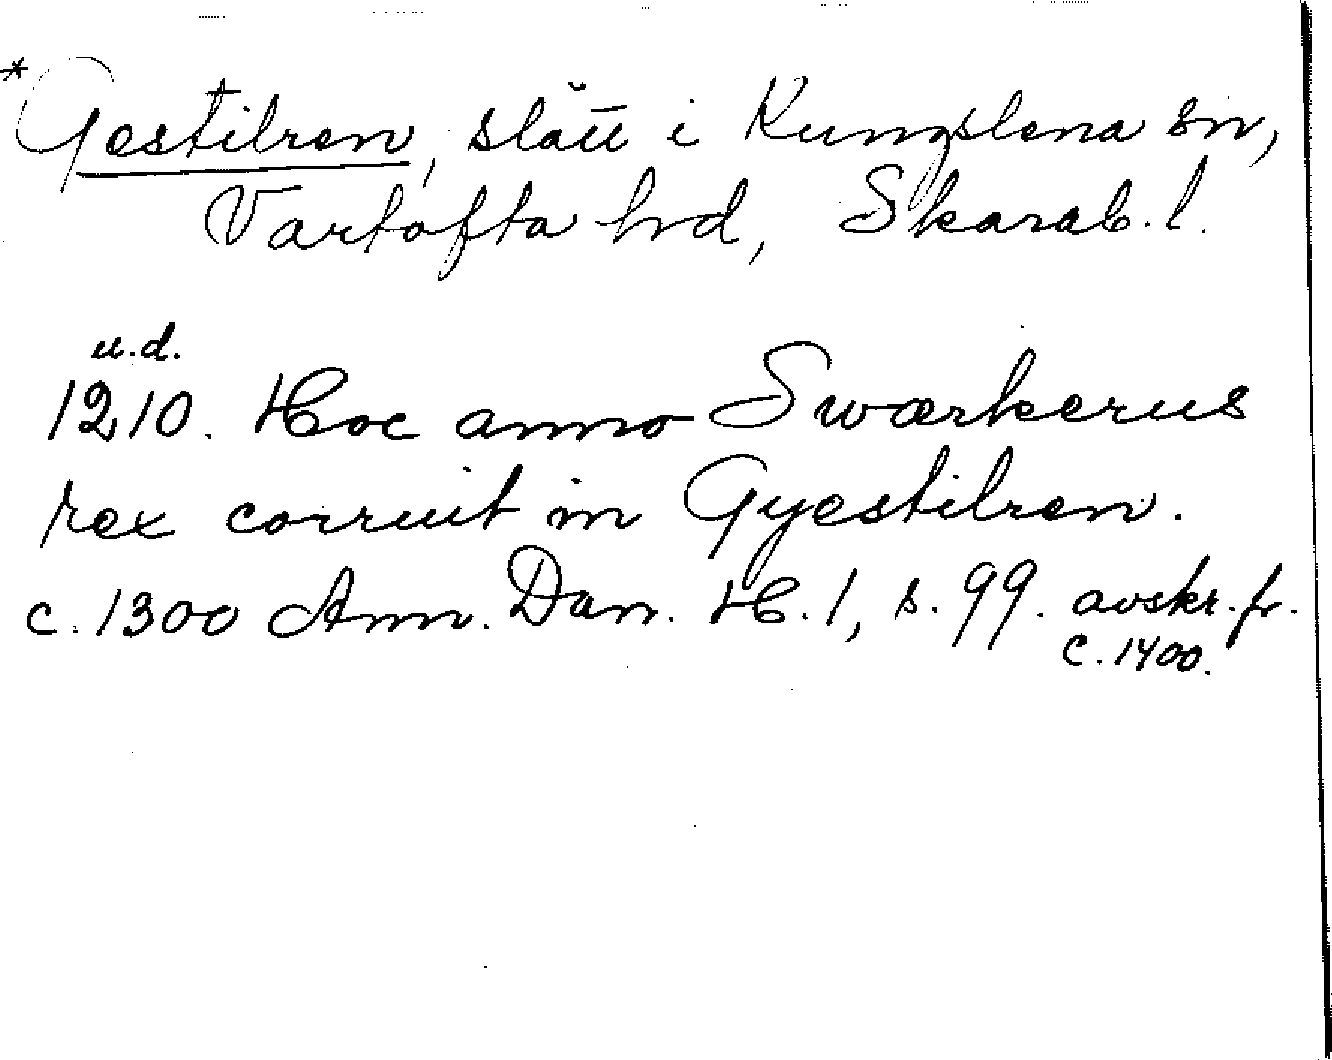 *Gestilren, slätt i Kungslena sn,
Vartofta hrd, Skarab. l.
u.d.
1210. Hoc anno Swærkerus
rex corruit in Gyestilren.
c. 1300 Ann. Dan. H. 1, s. 99. avskr. fr.
c. 1400.